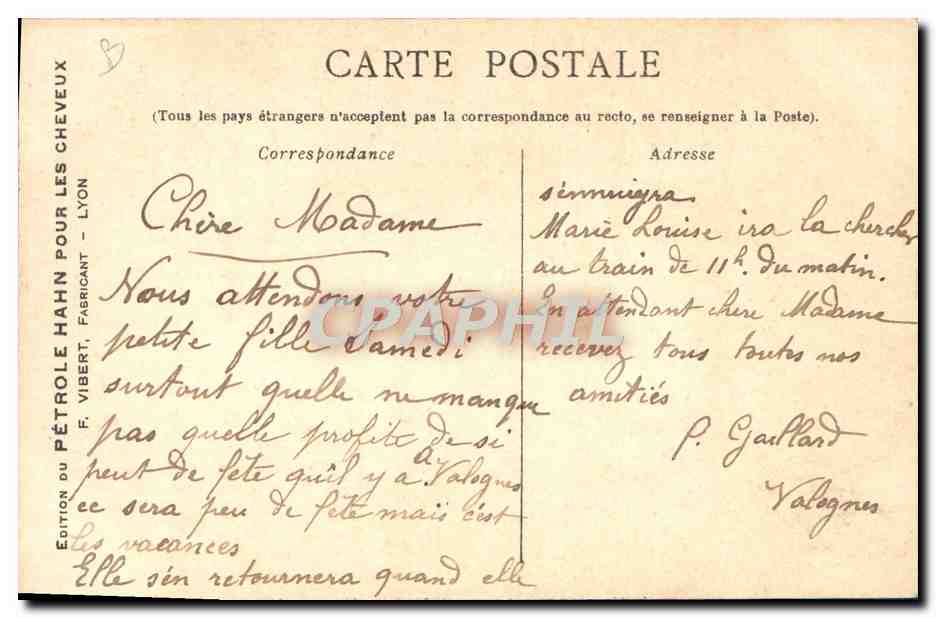 B
CARTE POSTALE
(Tous les pays étrangers n'acceptent pas la correspondance au recto, se renseigner à la Poste).
EDITION DU PÉTROLE HAHN POUR LES CHEVEUX
F. VIBERT, FABRICANT - LYON
Correspondance
Chère Madame
Nous attendons votre
petite fille Samedi
surtout quelle ne manque
pas quelle profite de si
peut de fête qu'il y a à Valognes
ce sera peu de fête mais c'est
les vacances
Elle s'en retournera quand elle
Adresse
s'ennuigra
Marie Louise ira la chercher
au train de 11h. du matin.
En attendant chere Madame
recevez tous toutes nos
amitiés
P. Gaillard
Valognes
CPAPHIL